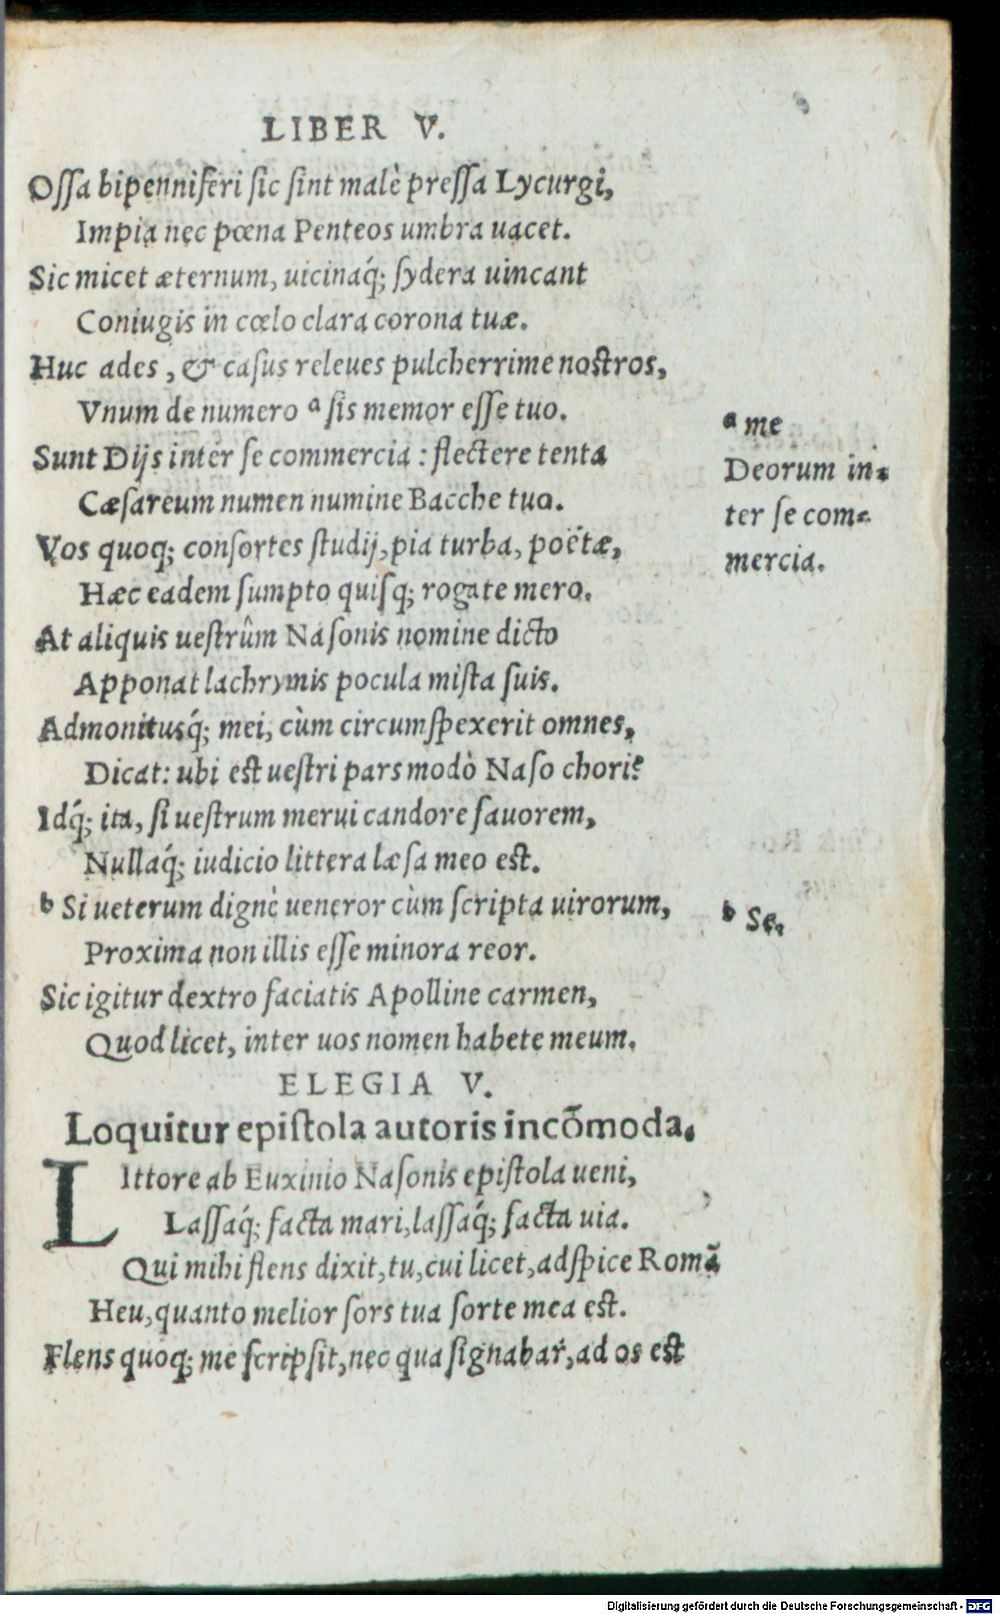 LIBER V.
Ossa bipenniferi sic sint malè pressa Lycurgi,
Impia nec pœna Penteos umbra uacet.
Sic micet æternum, uicinaq́; sydera uincant
Coniugis in cœlo clara corona tuæ.
Huc ades, & casus releues pulcherrime nostros,
Vnum de numero ᵃ sis memor esse tuo.
ᵃ me
Sunt Dijs inter se commercia : flectere tenta
Cæsareum numen numine Bacche tuo.
Deorum in-
ter se com-
mercia.
Vos quoq; consortes studij, pia turba, poëtæ,
Hæc eadem sumpto quisq; rogate mero.
At aliquis uestrûm Nasonis nomine dicto
Apponat lachrymis pocula mista suis.
Admonitusq́; mei, cùm circumspexerit omnes,
Dicat: ubi est uestri pars modò Naso chori?
Idq́; ita, si uestrum merui candore fauorem,
Nullaq́; iudicio littera læsa meo est.
ᵇ Si ueterum dignè ueneror cùm scripta uirorum,
ᵇ Se,
Proxima non illis esse minora reor.
Sic igitur dextro faciatis Apolline carmen,
Quod licet, inter uos nomen habete meum.
ELEGIA V.
Loquitur epistola autoris incōmoda.
LIttore ab Euxinio Nasonis epistola ueni,
Lassaq́; facta mari, lassaq́; facta uia.
Qui mihi flens dixit, tu, cui licet, adspice Romā
Heu, quanto melior sors tua sorte mea est.
Flens quoq; me scripsit, nec qua signabar, ad os est
Digitalisierung gefördert durch die Deutsche Forschungsgemeinschaft - DFG